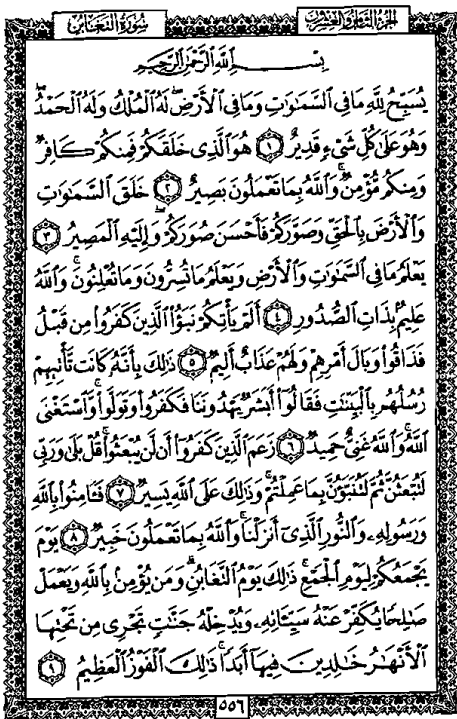 سُورَةُ التَّغَابُنِ
الجُزءُ الثَّامِنُ وَالعِشْرُونَ
بِسْمِ اللَّهِ الرَّحْمَٰنِ الرَّحِيمِ
يُسَبِّحُ لِلَّهِ مَا فِي السَّمَٰوَٰتِ وَمَا فِي الْأَرْضِ لَهُ الْمُلْكُ وَلَهُ الْحَمْدُ
وَهُوَ عَلَىٰ كُلِّ شَيْءٍ قَدِيرٌ ١ هُوَ الَّذِي خَلَقَكُمْ فَمِنكُمْ كَافِرٌ
وَمِنكُم مُّؤْمِنٌ وَاللَّهُ بِمَا تَعْمَلُونَ بَصِيرٌ ٢ خَلَقَ السَّمَٰوَٰتِ
وَالْأَرْضَ بِالْحَقِّ وَصَوَّرَكُمْ فَأَحْسَنَ صُوَرَكُمْ وَإِلَيْهِ الْمَصِيرُ ٣
يَعْلَمُ مَا فِي السَّمَٰوَٰتِ وَالْأَرْضِ وَيَعْلَمُ مَا تُسِرُّونَ وَمَا تُعْلِنُونَ وَاللَّهُ
عَلِيمٌ بِذَاتِ الصُّدُورِ ٤ أَلَمْ يَأْتِكُمْ نَبَؤُا الَّذِينَ كَفَرُوا مِن قَبْلُ
فَذَاقُوا وَبَالَ أَمْرِهِمْ وَلَهُمْ عَذَابٌ أَلِيمٌ ٥ ذَٰلِكَ بِأَنَّهُ كَانَت تَّأْتِيهِمْ
رُسُلُهُم بِالْبَيِّنَٰتِ فَقَالُوا أَبَشَرٌ يَهْدُونَنَا فَكَفَرُوا وَتَوَلَّوا وَّاسْتَغْنَى
اللَّهُ وَاللَّهُ غَنِيٌّ حَمِيدٌ ٦ زَعَمَ الَّذِينَ كَفَرُوا أَن لَّن يُبْعَثُوا قُلْ بَلَىٰ وَرَبِّي
لَتُبْعَثُنَّ ثُمَّ لَتُنَبَّؤُنَّ بِمَا عَمِلْتُمْ وَذَٰلِكَ عَلَى اللَّهِ يَسِيرٌ ٧ فَـَٔامِنُوا بِاللَّهِ
وَرَسُولِهِ وَالنُّورِ الَّذِي أَنزَلْنَا وَاللَّهُ بِمَا تَعْمَلُونَ خَبِيرٌ ٨ يَوْمَ
يَجْمَعُكُمْ لِيَوْمِ الْجَمْعِ ذَٰلِكَ يَوْمُ التَّغَابُنِ وَمَن يُؤْمِن بِاللَّهِ وَيَعْمَلْ
صَٰلِحًا يُكَفِّرْ عَنْهُ سَيِّـَٔاتِهِ وَيُدْخِلْهُ جَنَّٰتٍ تَجْرِي مِن تَحْتِهَا
الْأَنْهَٰرُ خَٰلِدِينَ فِيهَا أَبَدًا ذَٰلِكَ الْفَوْزُ الْعَظِيمُ ٩
٥٥٦